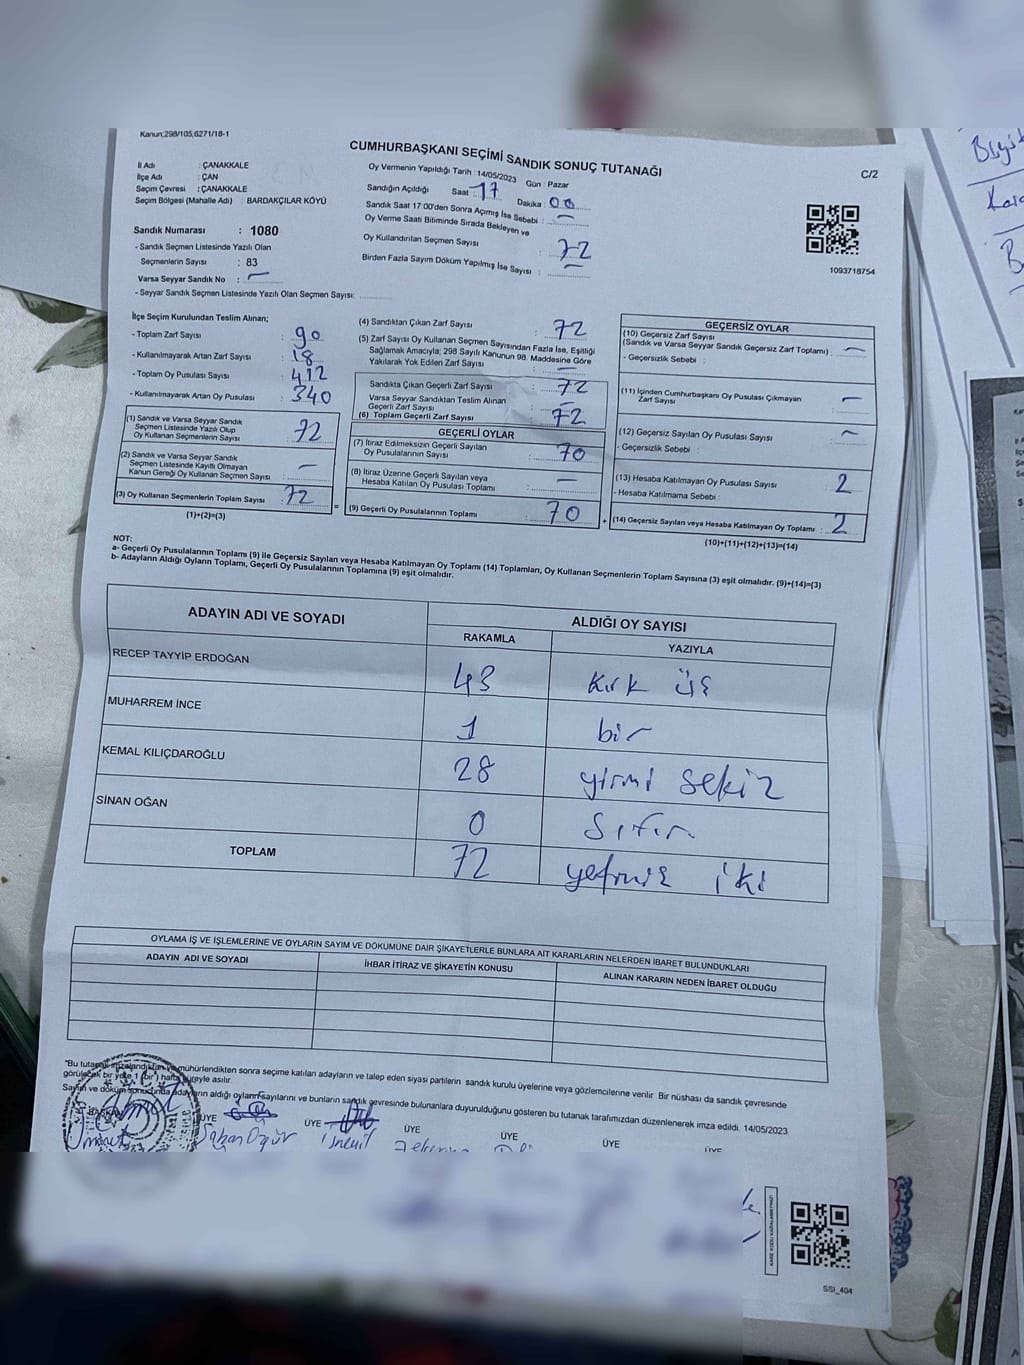 Kanun:298/105,6271/18-1
CUMHURBAŞKANI SEÇİMİ SANDIK SONUÇ TUTANAĞI
C/2
İl Adı : ÇANAKKALE
İlçe Adı : ÇAN
Seçim Çevresi : ÇANAKKALE
Seçim Bölgesi (Mahalle Adı) : BARDAKÇILAR KÖYÜ
Oy Vermenin Yapıldığı Tarih : 14/05/2023 Gün : Pazar
Sandığın Açıldığı Saat : 17 Dakika : 00
Sandık Saat 17:00'den Sonra Açımış İse Sebebi : —
Oy Verme Saati Bitiminde Sırada Bekleyen ve
Oy Kullandırılan Seçmen Sayısı : 72
Birden Fazla Sayım Döküm Yapılmış İse Sayısı : —
1093718754
Sandık Numarası : 1080
- Sandık Seçmen Listesinde Yazılı Olan
Seçmenlerin Sayısı : 83
Varsa Seyyar Sandık No : —
- Seyyar Sandık Seçmen Listesinde Yazılı Olan Seçmen Sayısı:
İlçe Seçim Kurulundan Teslim Alınan;
- Toplam Zarf Sayısı : 90
- Kullanılmayarak Artan Zarf Sayısı : 18
- Toplam Oy Pusulası Sayısı : 412
- Kullanılmayarak Artan Oy Pusulası : 340
(1) Sandık ve Varsa Seyyar Sandık
Seçmen Listesinde Yazılı Olup
Oy Kullanan Seçmenlerin Sayısı : 72
(2) Sandık ve Varsa Seyyar Sandık
Seçmen Listesinde Kayıtlı Olmayan
Kanun Gereği Oy Kullanan Seçmen Sayısı : —
(3) Oy Kullanan Seçmenlerin Toplam Sayısı : 72
(1)+(2)=(3)
(4) Sandıktan Çıkan Zarf Sayısı : 72
(5) Zarf Sayısı Oy Kullanan Seçmen Sayısından Fazla İse, Eşitliği
Sağlamak Amacıyla; 298 Sayılı Kanunun 98. Maddesine Göre
Yakılarak Yok Edilen Zarf Sayısı : —
Sandıkta Çıkan Geçerli Zarf Sayısı : 72
Varsa Seyyar Sandıktan Teslim Alınan
Geçerli Zarf Sayısı : —
(6) Toplam Geçerli Zarf Sayısı : 72
GEÇERLİ OYLAR
(7) İtiraz Edilmeksizin Geçerli Sayılan
Oy Pusulalarının Sayısı : 70
(8) İtiraz Üzerine Geçerli Sayılan veya
Hesaba Katılan Oy Pusulası Toplamı : —
(9) Geçerli Oy Pusulalarının Toplamı : 70
GEÇERSİZ OYLAR
(10) Geçersiz Zarf Sayısı
(Sandık ve Varsa Seyyar Sandık Geçersiz Zarf Toplamı) : —
- Geçersizlik Sebebi :
(11) İçinden Cumhurbaşkanı Oy Pusulası Çıkmayan
Zarf Sayısı : —
(12) Geçersiz Sayılan Oy Pusulası Sayısı : —
- Geçersizlik Sebebi :
(13) Hesaba Katılmayan Oy Pusulası Sayısı : 2
- Hesaba Katılmama Sebebi :
(14) Geçersiz Sayılan veya Hesaba Katılmayan Oy Toplamı : 2
(10)+(11)+(12)+(13)=(14)
NOT:
a- Geçerli Oy Pusulalarının Toplamı (9) ile Geçersiz Sayılan veya Hesaba Katılmayan Oy Toplamı (14) Toplamları, Oy Kullanan Seçmenlerin Toplam Sayısına (3) eşit olmalıdır. (9)+(14)=(3)
b- Adayların Aldığı Oyların Toplamı, Geçerli Oy Pusulalarının Toplamına (9) eşit olmalıdır.
ADAYIN ADI VE SOYADI ALDIĞI OY SAYISI
RAKAMLA YAZIYLA
RECEP TAYYİP ERDOĞAN 43 kırk üç
MUHARREM İNCE 1 bir
KEMAL KILIÇDAROĞLU 28 yirmi sekiz
SİNAN OĞAN 0 Sıfır
TOPLAM 72 yetmiş iki
OYLAMA İŞ VE İŞLEMLERİNE VE OYLARIN SAYIM VE DÖKÜMÜNE DAİR ŞİKAYETLERLE BUNLARA AİT KARARLARIN NELERDEN İBARET BULUNDUKLARI
ADAYIN ADI VE SOYADI İHBAR İTİRAZ VE ŞİKAYETİN KONUSU ALINAN KARARIN NEDEN İBARET OLDUĞU
"Bu tutanak imzalandıktan ve mühürlendikten sonra seçime katılan adayların ve talep eden siyasi partilerin sandık kurulu üyelerine veya gözlemcilerine verilir. Bir nüshası da sandık çevresinde
görülecek bir yere 1 (bir) hafta süreyle asılır.
Sayım ve döküm sonucunda adayların aldığı oyların sayılarını ve bunların sandık çevresinde bulunanlara duyurulduğunu gösteren bu tutanak tarafımızdan düzenlenerek imza edildi. 14/05/2023
BAŞKAN ÜYE ÜYE ÜYE ÜYE ÜYE ÜYE
KARE KODU KARALAMAYINIZ!
SSI_404